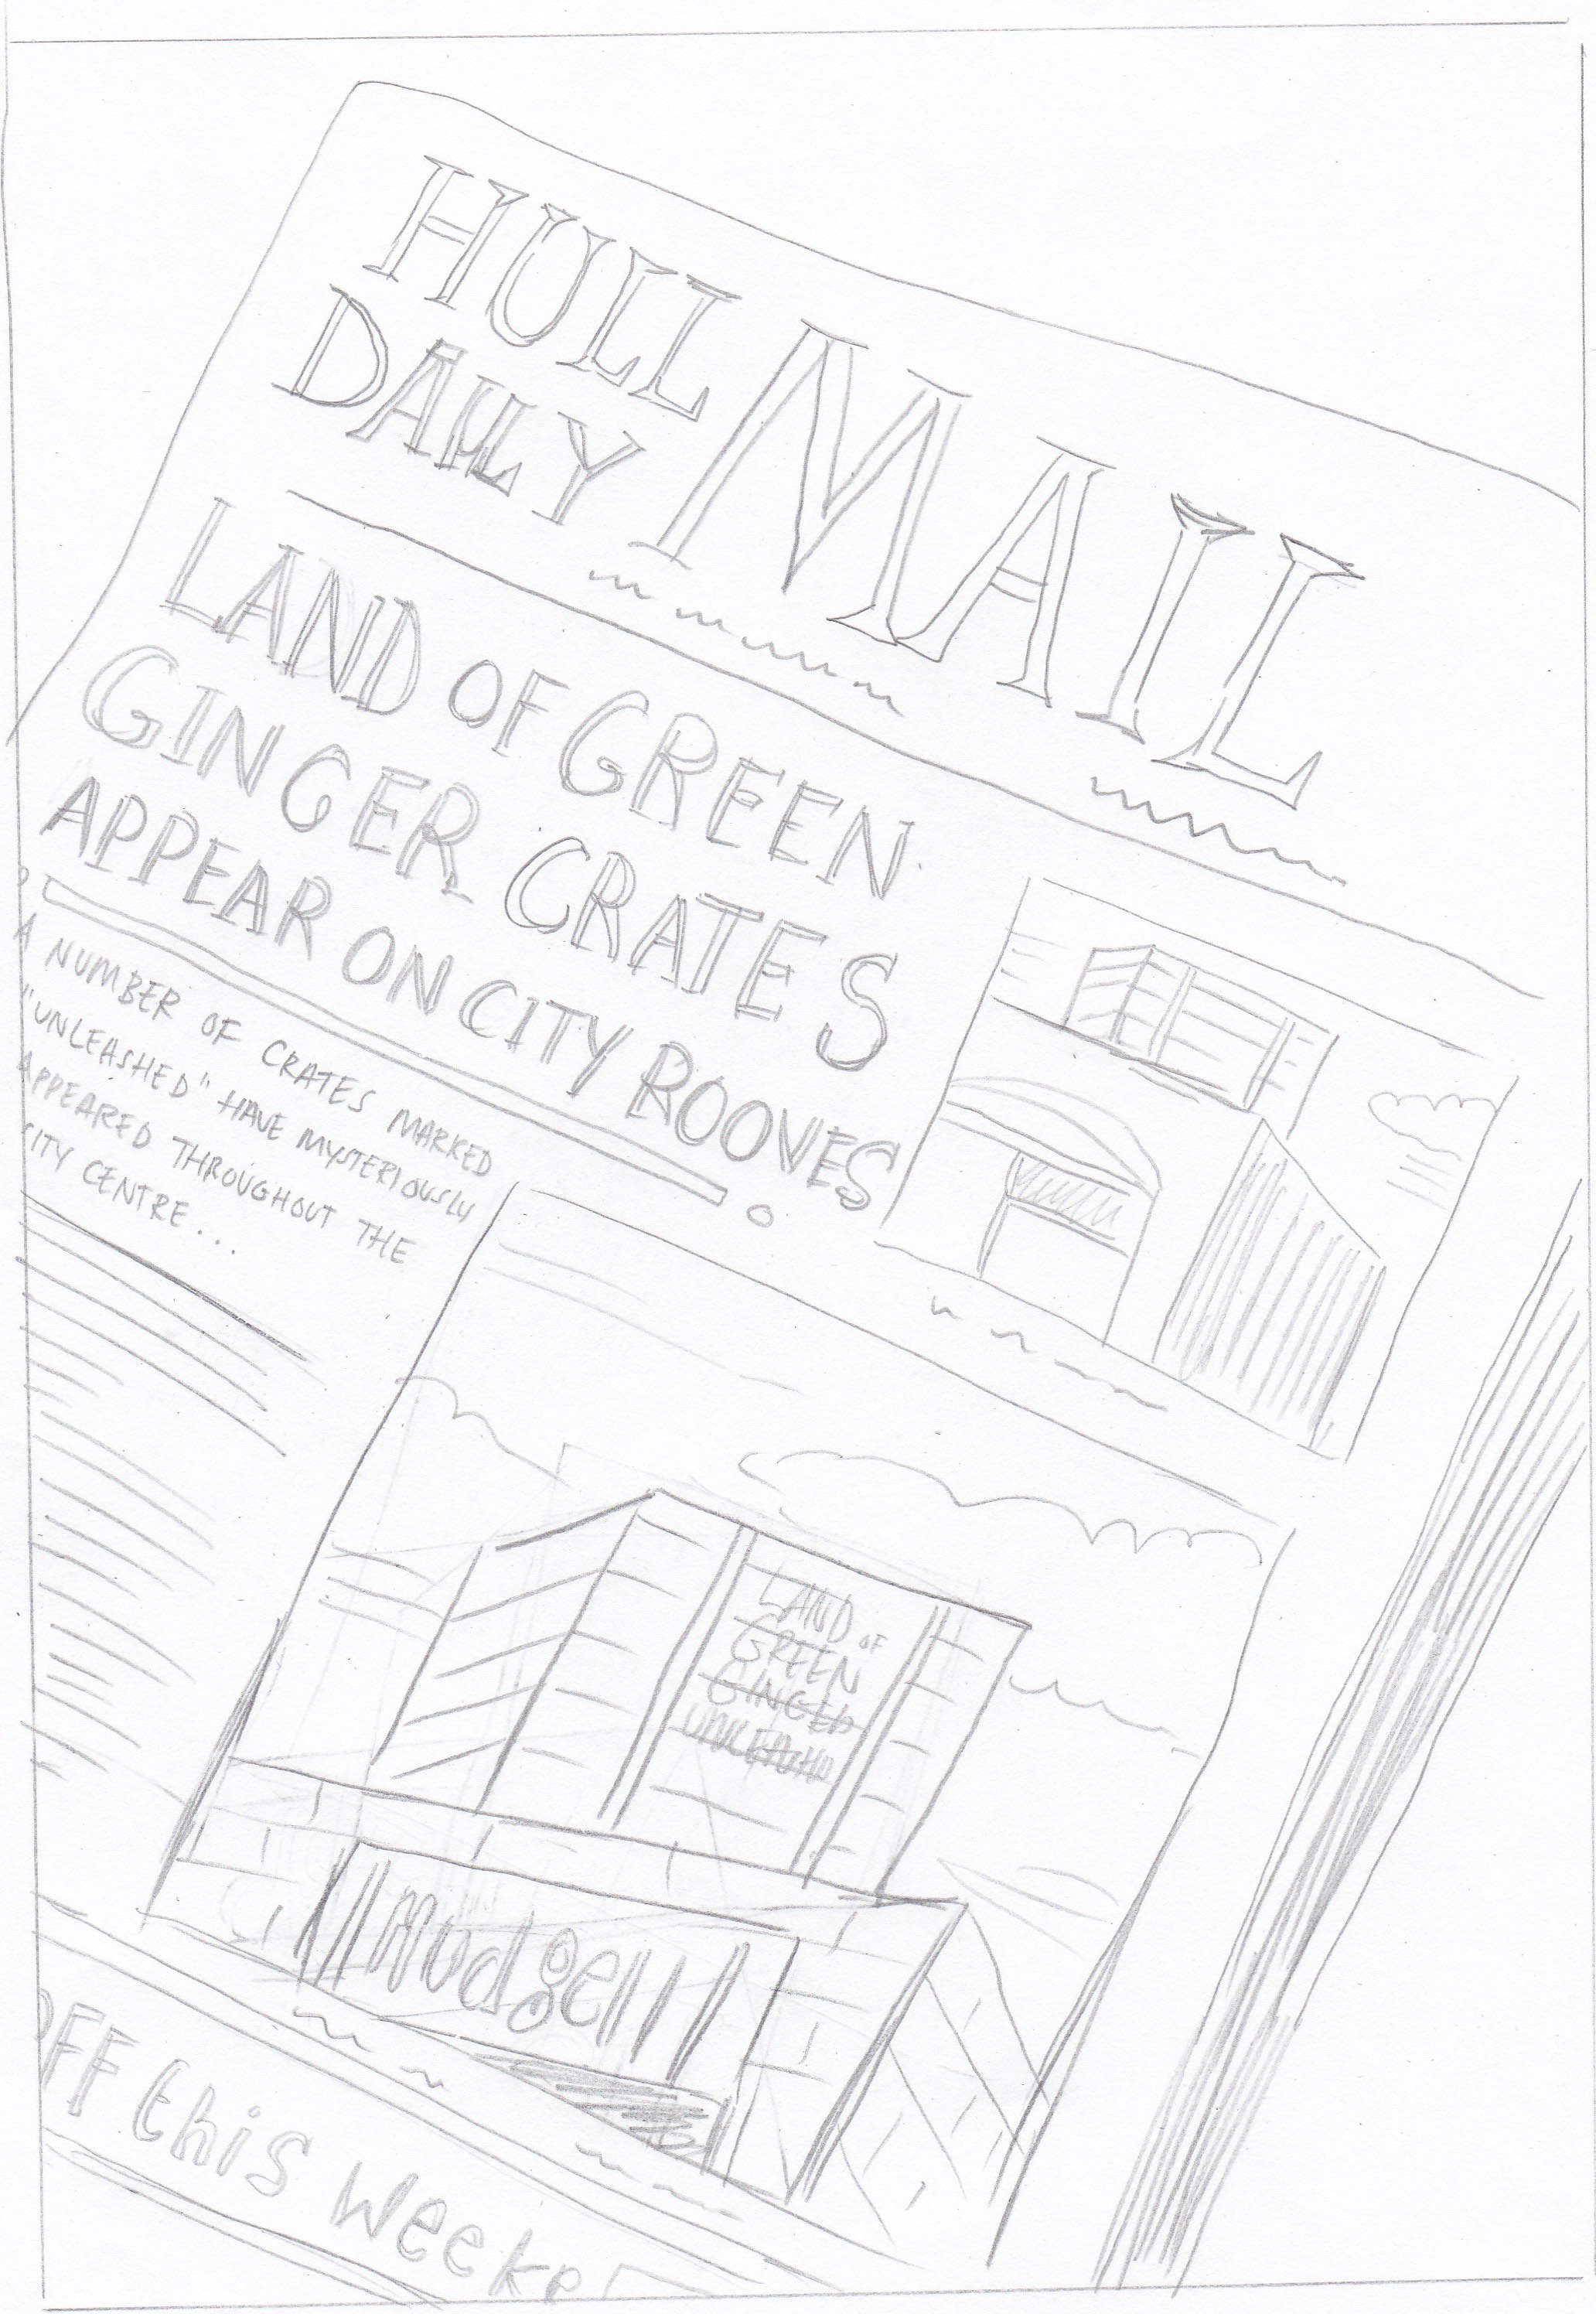 HULL
DAILY
MAIL
LAND OF GREEN
GINGER CRATES
APPEAR ON CITY ROOVES
A NUMBER OF CRATES MARKED
"UNLEASHED" HAVE MYSTERIOUSLY
APPEARED THROUGHOUT THE
CITY CENTRE...
LAND OF
GREEN
GINGER
mudge
OFF this weeke